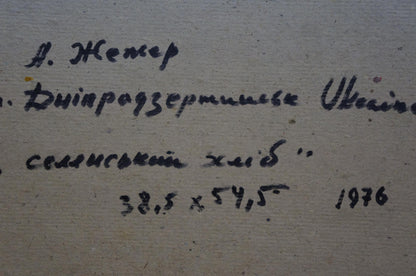 А. Жежер
м. Дніпродзержинськ Ukraine
селянський хліб"
38,5 x 54,5 1976